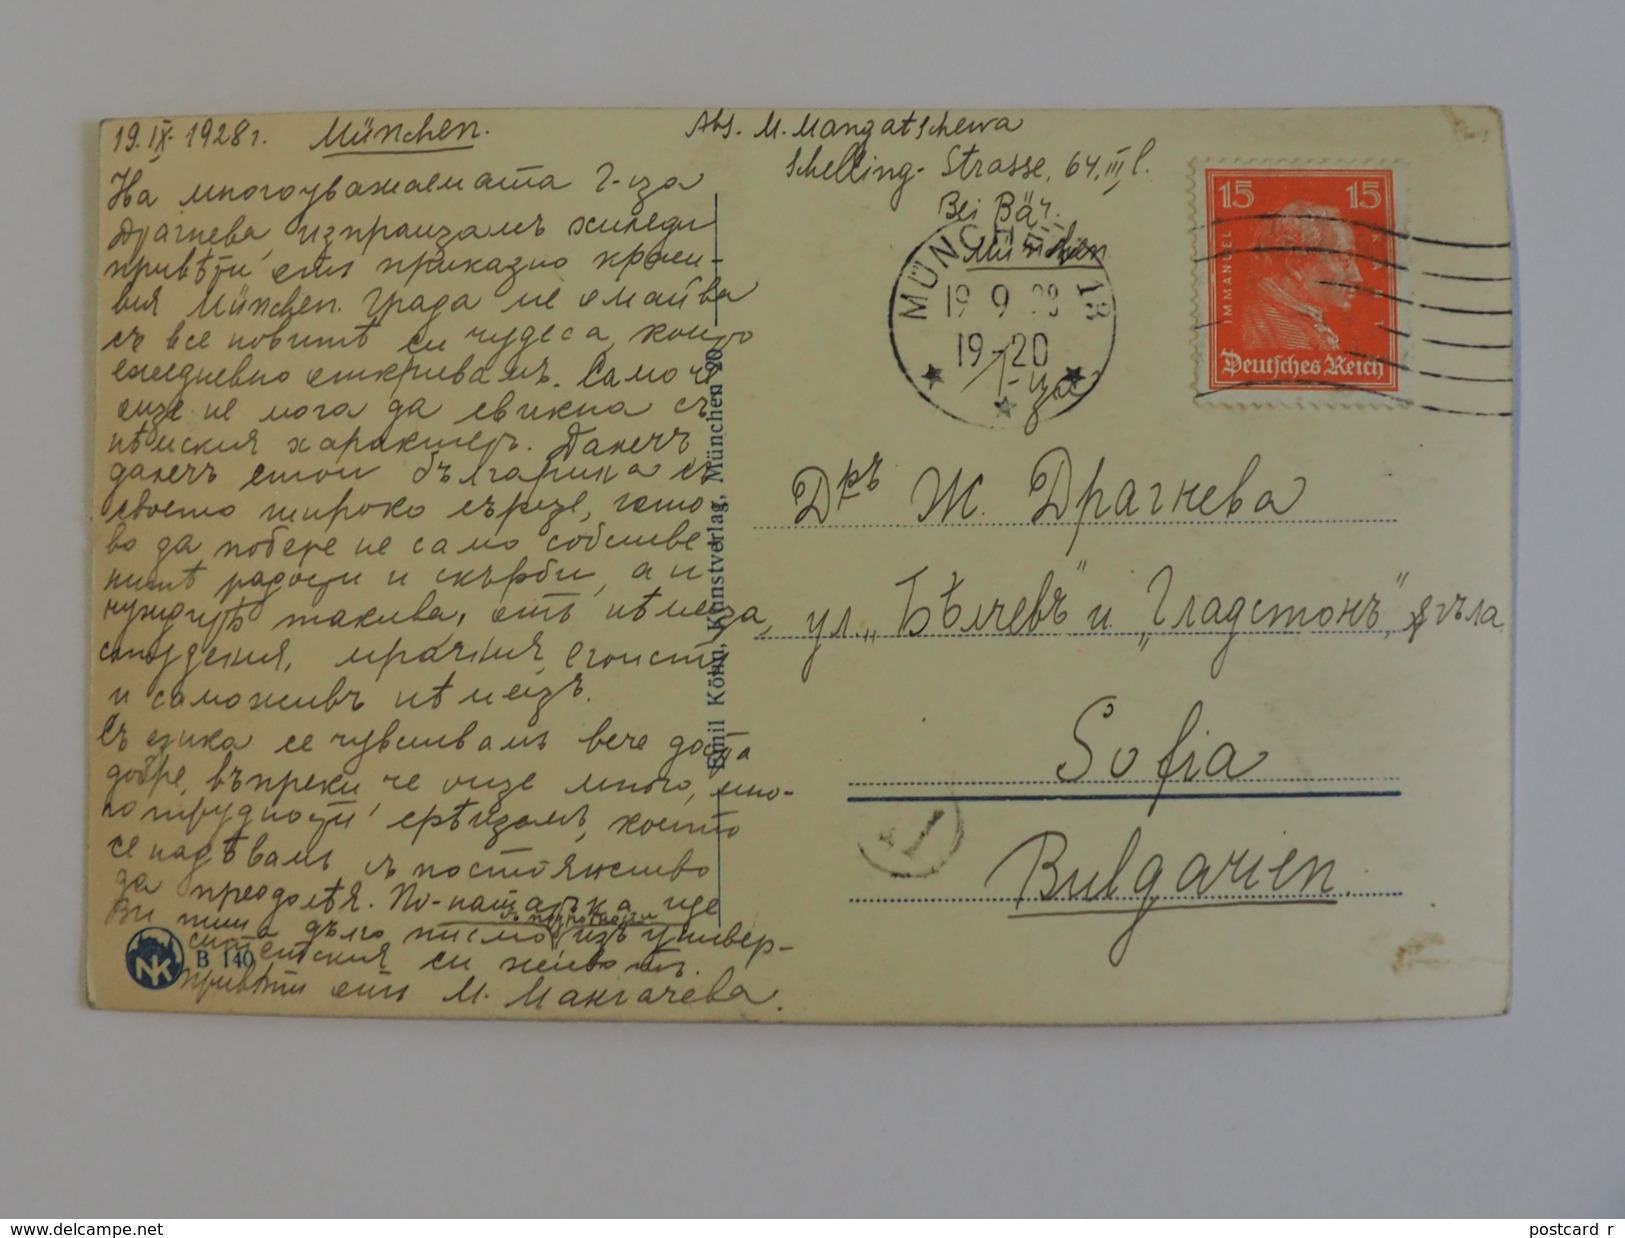 19.IX.1928г. München.
На многоуважаемата Г-жа
Драгнева, изпращамъ хиляди
привѣти отъ приказно краси-
вия München. Града ме омайва
съ все новитѣ си чудеса, които
ежедневно откривамъ. Само че
още не мога да свикна съ
нѣмския характеръ. Далечъ,
далечъ стои българина съ
своето широко сърце, гото-
во да побере не само собстве-
нитѣ радости и скърби, а и
чуждитѣ такива, отъ нѣмеца,
студения, мрачния, егоистъ
и саможивъ нѣмецъ.
Съ езика се чувствамъ вече доста
добре, въпреки че още много, мно-
го трудности срѣщамъ, които
се надѣвамъ съ постоянство
да преодолѣя. По-нататъка ще
Ви пиша дълго писмо съ подробности изъ универ-
ситетския си животъ.
Привѣти отъ М. Мангачева.
B 140
Emil Köhn, Kunstverlag, München 20
Abs. M. Mangatschewa
Schelling-Strasse, 64, III l.
Bei Bär.
München
MÜNCHEN 18
19 9 28
19-20
15 15
IMMANUEL
Deutsches Reich
Г-жа
Д-ръ Ж. Драгнева
ул. „Бѣлчевъ" и „Гладстонъ", ѫгъла
Sofia
Bulgarien.
T
postcard r
www.delcampe.net